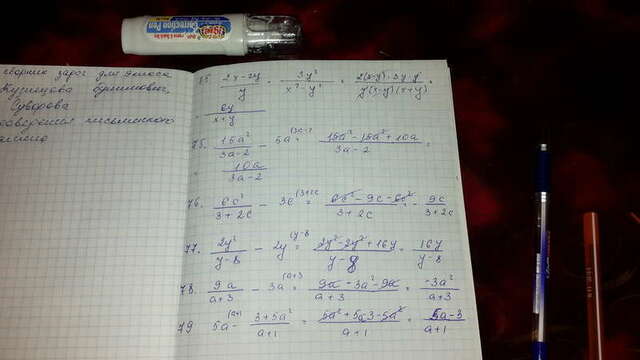 Correction Pen
сборник задач для 9 класса
Кузнецова Бунимович,
Суворова
15. (2x-2y)/y · 3y²/(x²-y²) = 2(x-y)·3y·y/(y(x-y)(x+y))
= 6y/(x+y)
75. 15a²/(3a-2) - 5a (3a-2 = (15a²-15a²+10a)/(3a-2) =
= 10a/(3a-2)
76. 6c²/(3+2c) - 3c (3+2c = (6c²-9c-6c²)/(3+2c) = -9c/(3+2c)
77. 2y²/(y-8) - 2y (y-8 = (2y²-2y²+16y)/(y-8) = 16y/(y-8)
78. 9a/(a+3) - 3a (a+3 = (9a-3a²-9a)/(a+3) = -3a²/(a+3)
79 5a (a+1 - (3+5a²)/(a+1) = (5a²+5a-3-5a²)/(a+1) = (5a-3)/(a+1)